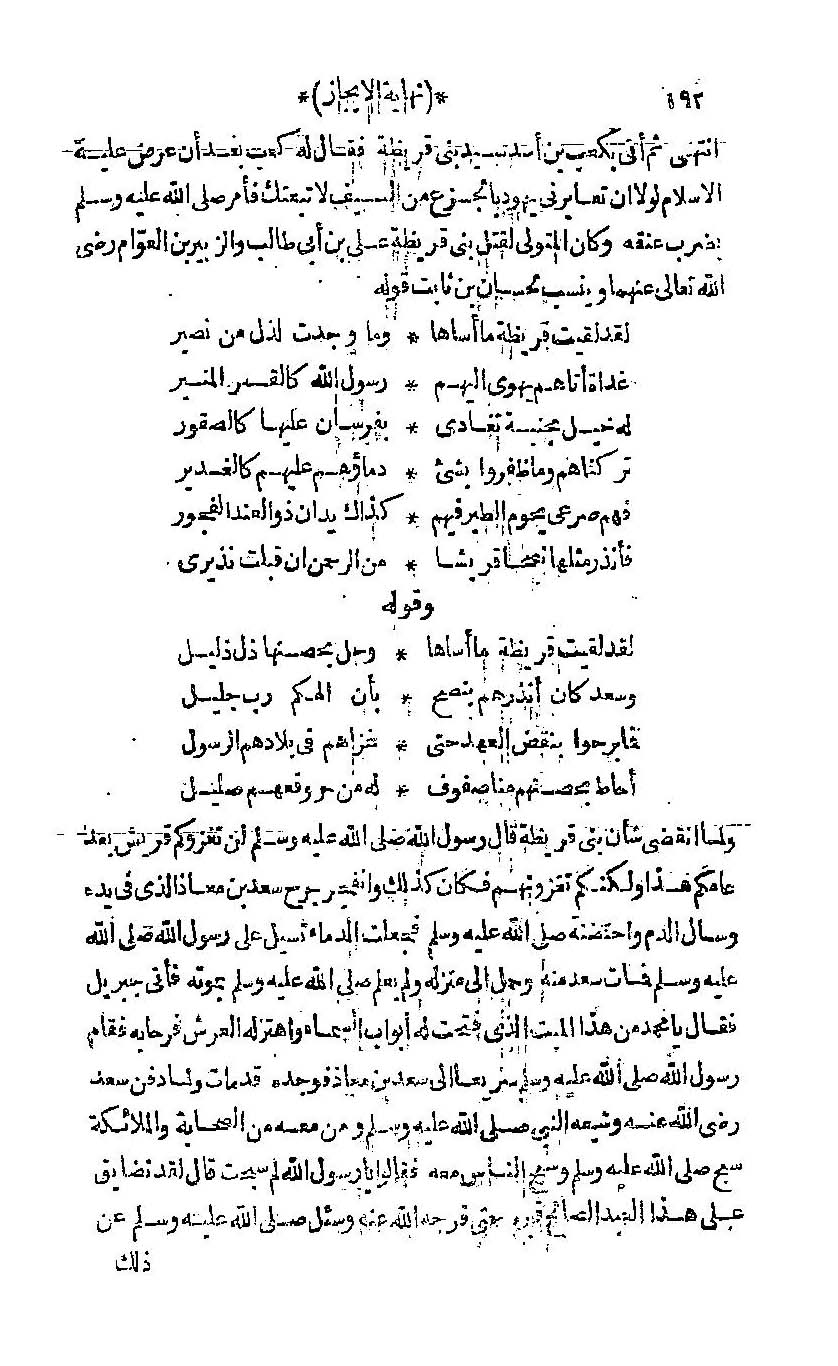 ١٩٢ *(نهاية الايجاز)*
انتهى ثم أتى بكعب بن أسد سيد بنى قريظة فقال له كعب بعد أن عرض عليه
الاسلام لولا ان تعايرنى يهود بالجزع من السيف لا تبعتك فأمر صلى الله عليه وسلم
بضرب عنقه وكان المتولى لقتل بنى قريظة على بن أبى طالب والزبير بن العوّام رضى
الله تعالى عنهما وينسب لحسان بن ثابت قوله
لقد لقيت قريظة ما أساها * وما وجدت لذل من نصير
غداة أتاهم يهوى اليهم * رسول الله كالقمر المنير
له خيل مجنبة تعادى * بفرسان عليها كالصقور
تركناهم وما ظفروا بشئ * دماؤهم عليهم كالغدير
فهم صرعى يحوم الطير فيهم * كذاك يدان ذو العند الفجور
فأنذر مثلها نصحا قريشا * من الرحمن ان قبلت نذيرى
وقوله
لقد لقيت قريظة ما أساها * وحل بحصنها ذل ذليل
وسعد كان أنذرهم بنصح * بأن الهكم رب جليل
فما برحوا بنقض العهد حتى * غزاهم فى بلادهم الرسول
أحاط بحصنهم منا صفوف * له من حر وقعهم صليل
ولما انقضى شأن بنى قريظة قال رسول الله صلى الله عليه وسلم لن تغزوكم قريش بعد
عامكم هذا ولكنكم تغزونهم فكان كذلك وانفجر جرح سعد بن معاذ الذى فى يده
وسال الدم واحتضنه صلى الله عليه وسلم فجعلت الدماء تسيل على رسول الله صلى الله
عليه وسلم فمات سعد منه وحمل الى منزله ولم يعلم صلى الله عليه وسلم بموته فأتى جبريل
فقال يا محمد من هذا الميت الذى فتحت له أبواب السماء واهتز له العرش فرحا به فقام
رسول الله صلى الله عليه وسلم سريعا الى سعد بن معاذ فوجده قد مات ولما دفن سعد
رضى الله عنه وشيعه النبى صلى الله عليه وسلم ومن معه من الصحابة والملائكة
سبح صلى الله عليه وسلم وسبح الناس معه فقالوا يا رسول الله لم سبحت قال لقد تضايق
على هذا العبد الصالح قبره حتى فرجه الله عنه وسئل صلى الله عليه وسلم عن
ذلك